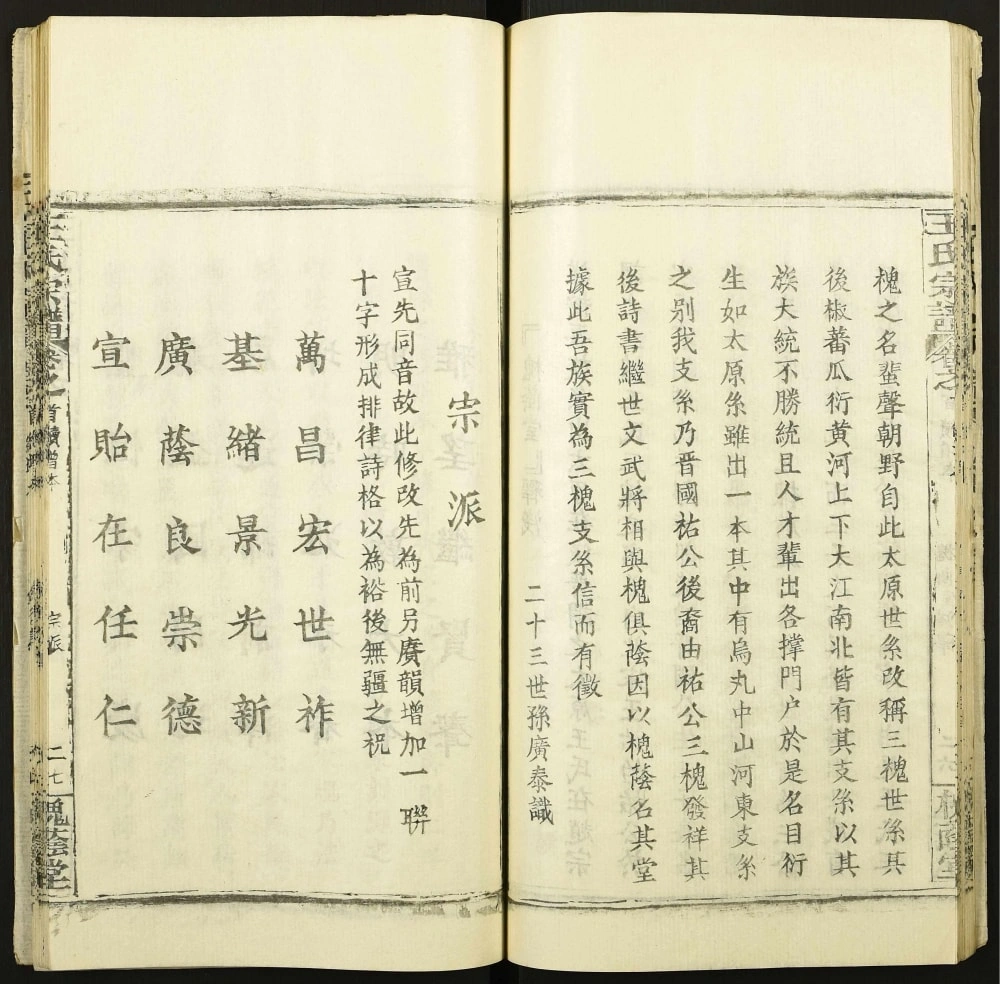 王氏宗譜卷之
槐之名蜚聲朝野自此太原世系改稱三槐世系其
後椒蕃瓜衍黄河上下大江南北皆有其支系以其
族大統不勝統且人才輩出各撑門户於是名目衍
生如太原系雖出一本其中有烏丸中山河東支系
之别我支系乃晋國祐公後裔由祐公三槐發祥其
後詩書繼世文武將相與槐俱蔭因以槐蔭名其堂
據此吾族實為三槐支系信而有徵
二十三世孫廣泰識
宗派
宣先同音故此修改先為前另賡韻增加一聯
十字形成排律詩格以為裕後無疆之祝
萬昌宏世祚
基緒景光新
廣蔭良崇德
宣貽在任仁
王氏宗譜卷之首續增本
宗派
二七
槐蔭堂